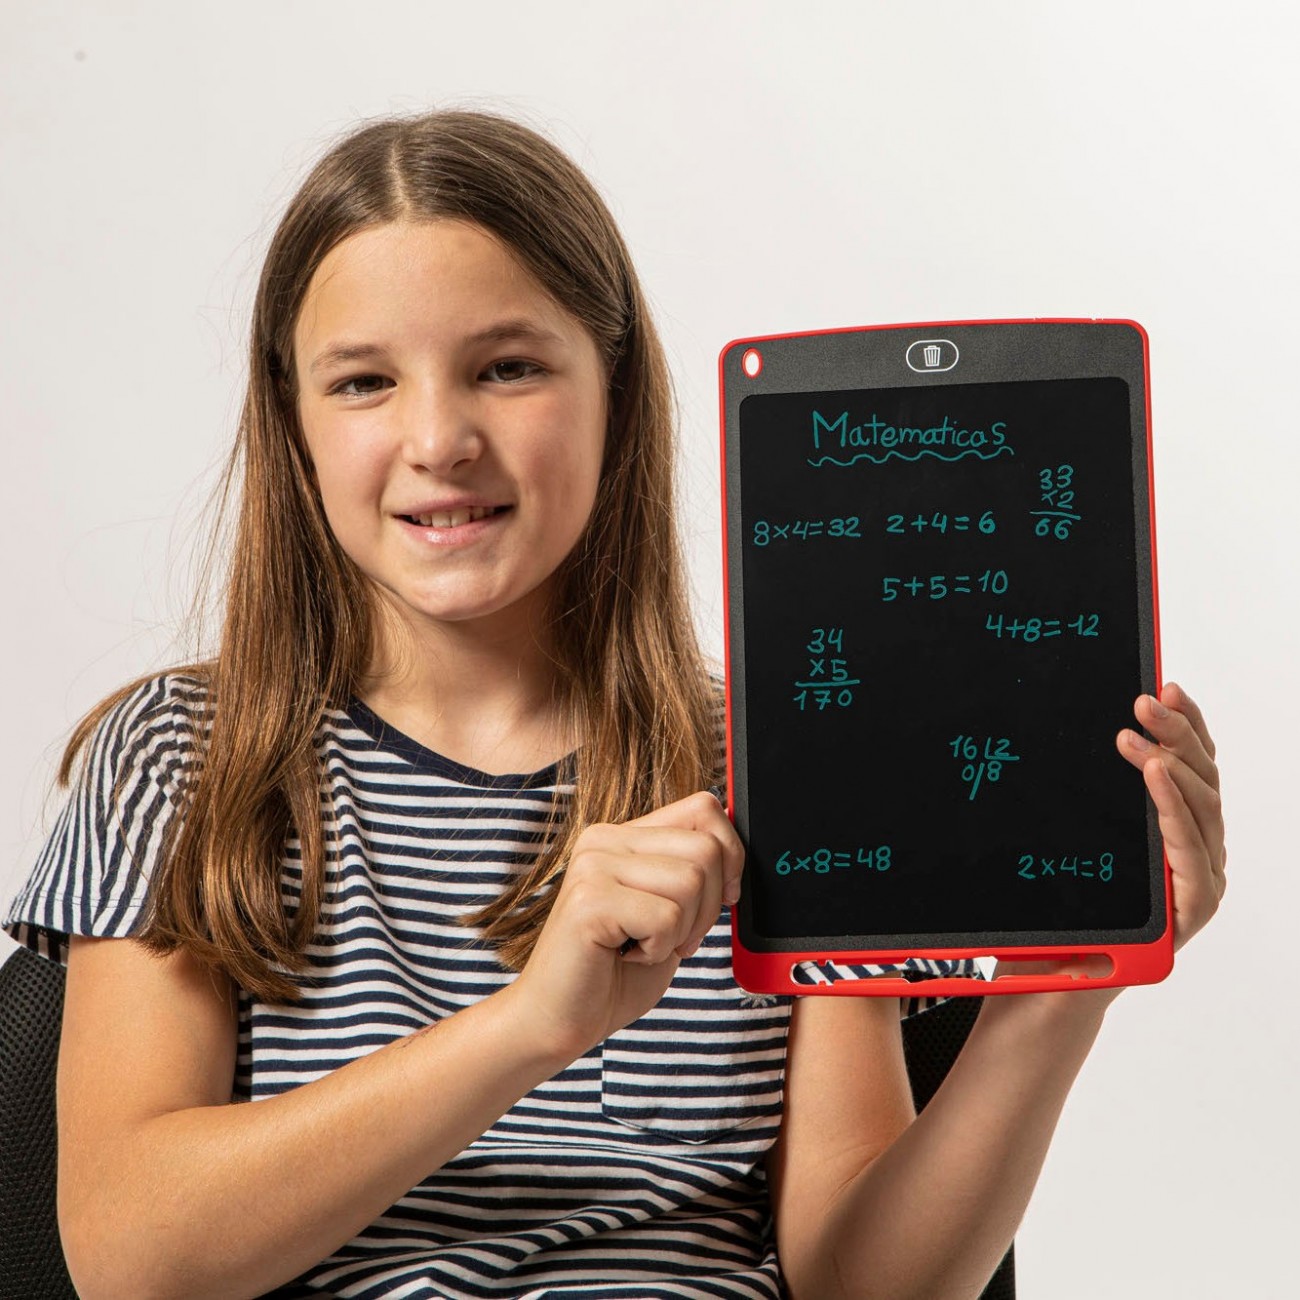 Matematicas
8×4=32 2+4=6
33
×2
66
5+5=10
4+8=12
34
×5
170
16 2
0/8
6×8=48
2×4=8